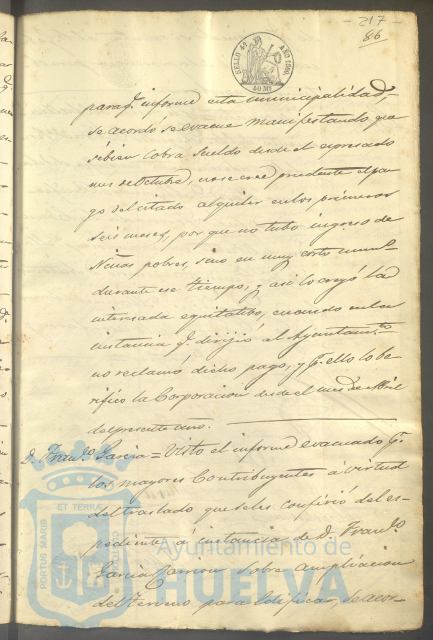 - 217 -
86
SELLO 4º AÑO 1860.
40 Ms
paraq.e informe esta municipalidad,
se acordó se evacue manifestando que
si bien cobra sueldo desde el espresado
mes de Octubre, no se cree prudente el pa-
go del citado alquiler en los primeros
seis meses, por que no tubo ingreso de
Niñas pobres, sino en muy corto num.o
durante ese tiempo, y así lo creyó la
interesada equitativo, cuando en la
instancia q.e dirijió al Ayuntam.to
no reclamó dicho pago, y q.e ello lo be-
rificó la Corporacion desde el mes de Abril
del presente año.
D. Fran.co Garcia = Visto el informe evacuado p.r
los mayores Contribuyentes á virtud
del traslado que se les confirió del es-
pediente á instancia de D. Fran.co
Garcia Carrion sobre ampliacion
del terreno para edificar, se acor-
PORTUS MARIS ET TERRAE CUSTODIA
Ayuntamiento de
HUELVA